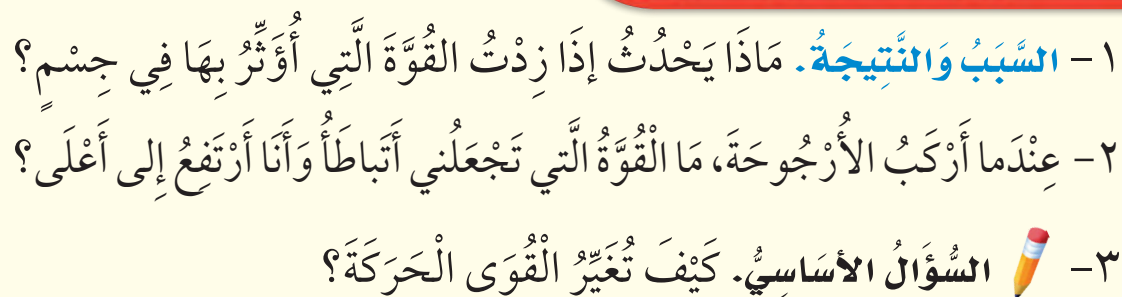 ١- السَّبَبُ وَالنَّتِيجَةُ. مَاذَا يَحْدُثُ إذَا زِدْتُ القُوَّةَ الَّتِي أُؤَثِّرُ بِهَا فِي جِسْمٍ؟
٢- عِنْدَما أَرْكَبُ الأُرْجُوحَةَ، مَا الْقُوَّةُ الَّتي تَجْعَلُني أَتَباطَأُ وَأَنَا أَرْتَفِعُ إِلى أَعْلَى؟
٣- السُّؤَالُ الأسَاسِيُّ. كَيْفَ تُغَيِّرُ الْقُوَى الْحَرَكَةَ؟